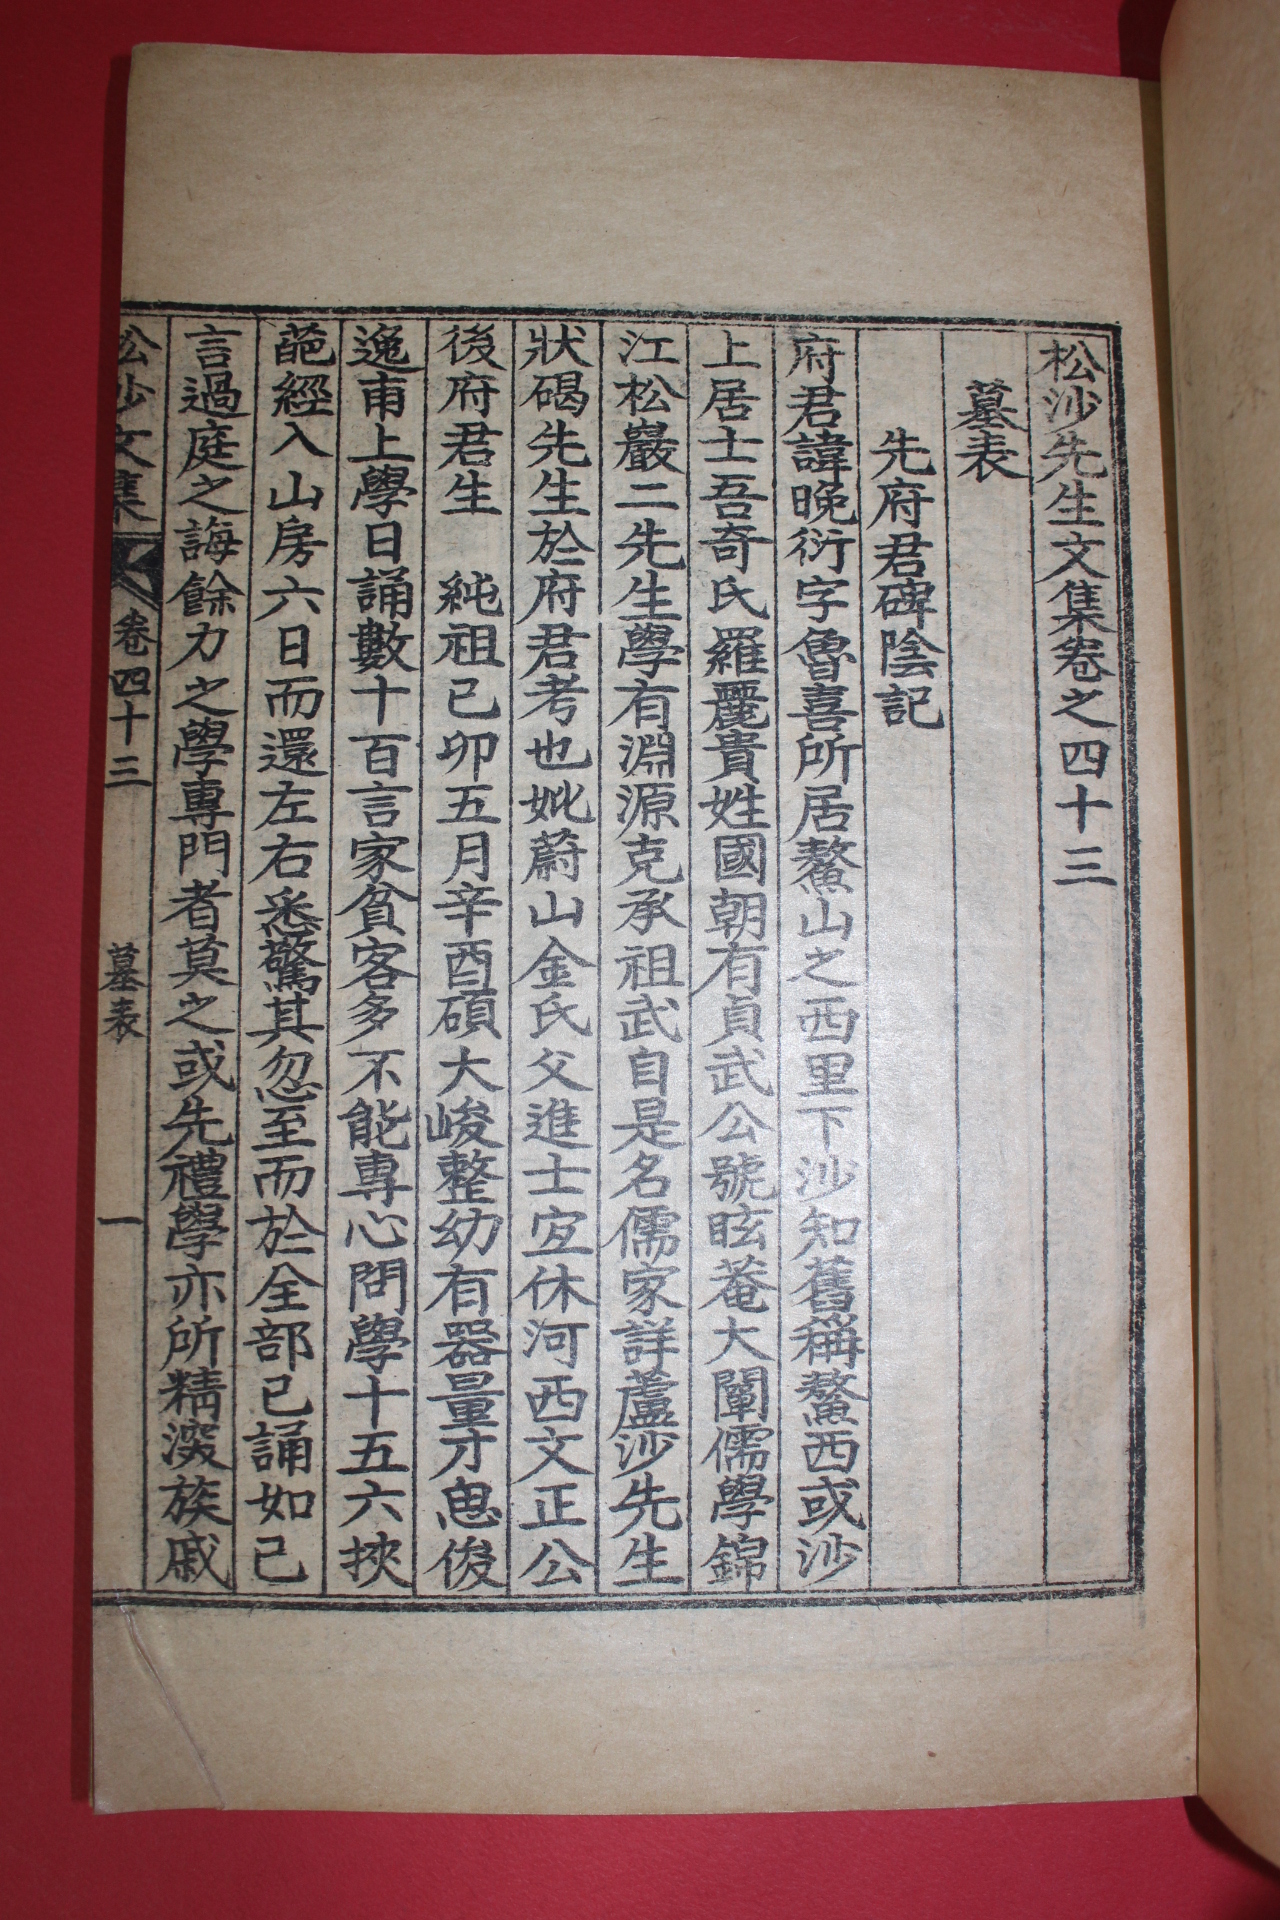 松沙先生文集卷之四十三
墓表
先府君碑陰記
府君諱晚衍字魯喜所居鰲山之西里下沙知舊稱鰲西或沙
上居士吾奇氏羅麗貴姓國朝有貞武公號眩菴大闡儒學錦
江松巖二先生學有淵源克承祖武自是名儒家詳蘆沙先生
狀碣先生於府君考也妣蔚山金氏父進士宐休河西文正公
後府君生 純祖己卯五月辛酉碩大峻整幼有器量才思俊
逸甫上學日誦數十百言家貧客多不能專心問學十五六挾
葩經入山房六日而還左右悉驚其忽至而於全部已誦如己
言過庭之誨餘力之學專門者莫之或先禮學亦所精深族戚
松沙文集 卷四十三 墓表 一